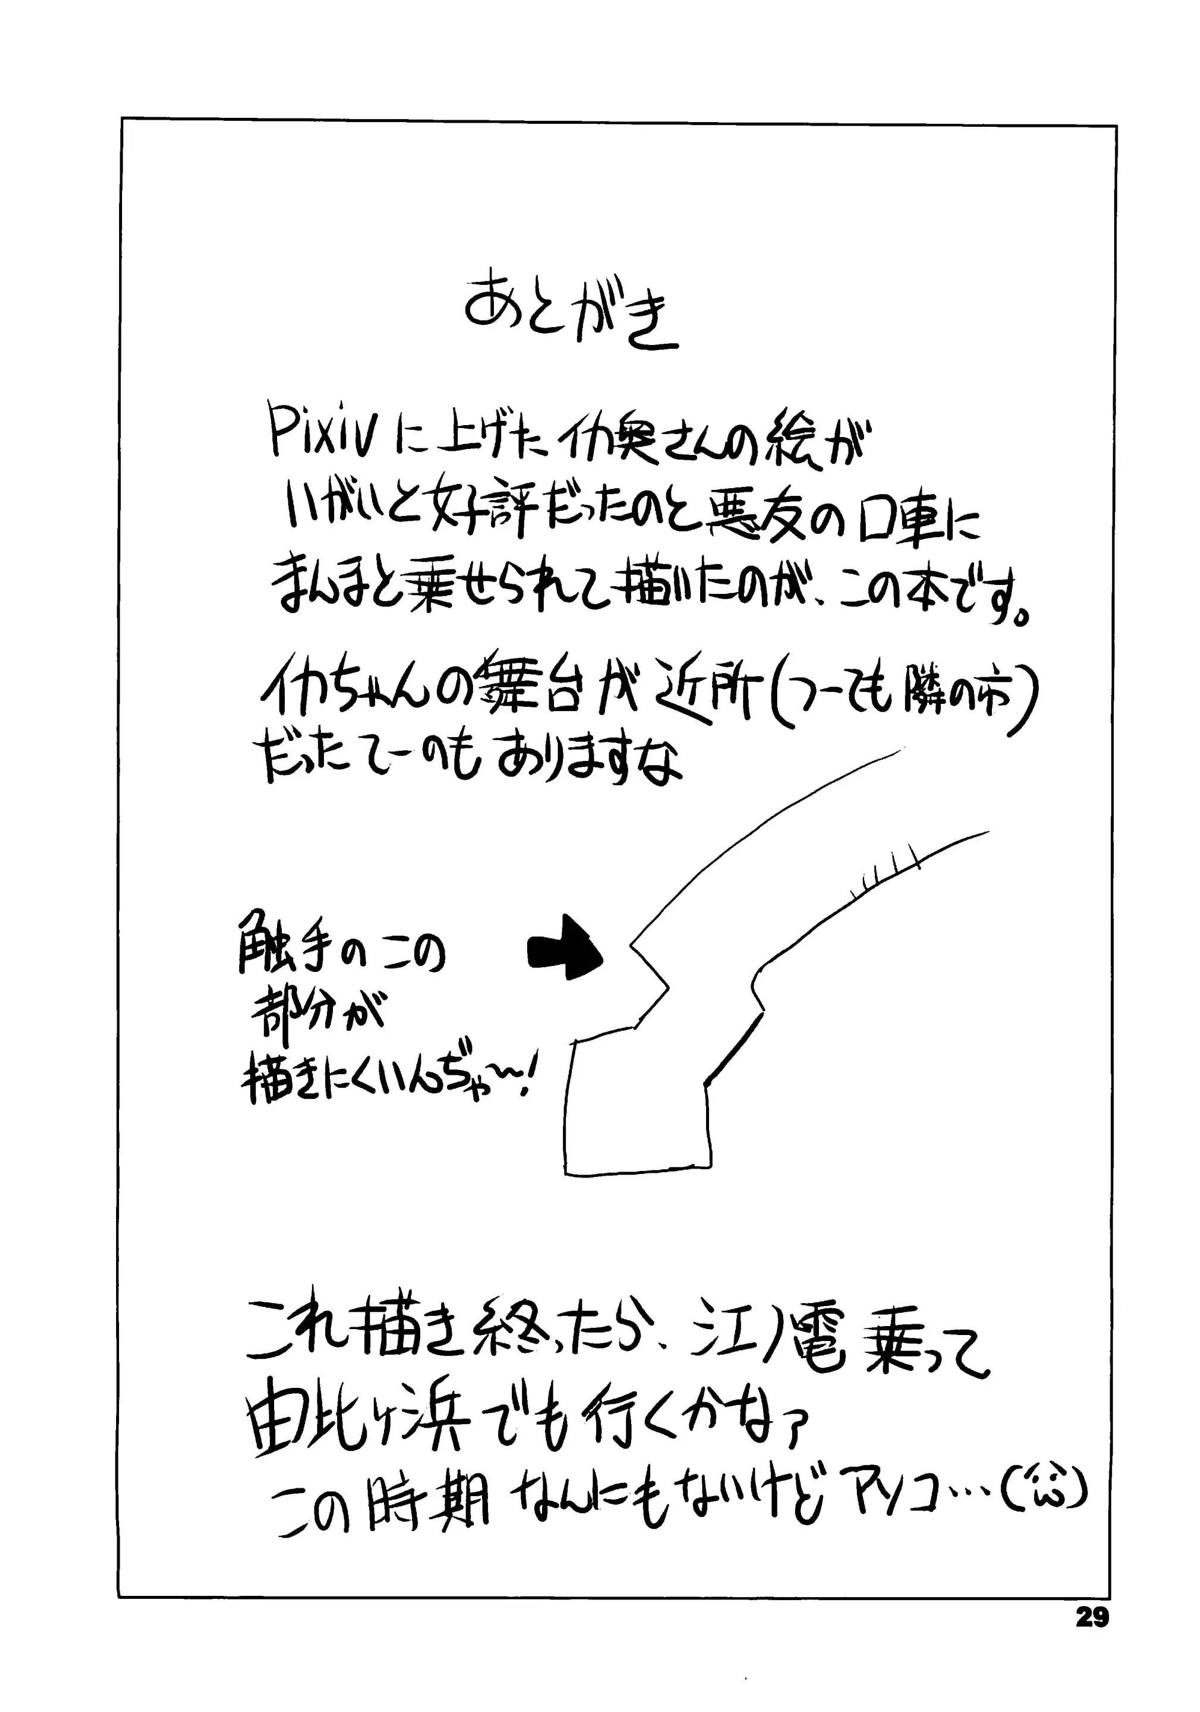 あとがき
Pixivに上げたイカ奥さんの絵が
いがいと好評だったのと悪友の口車に
まんまと乗せられて描いたのが、この本です。
イカちゃんの舞台が近所(つーても隣の市)
だったてーのもありますな
触手のこの
部分が
描きにくいんぢゃ〜!
これ描き終ったら、江ノ電乗って
由比ヶ浜でも行くかなァ
この時期なんにもないけどアソコ…(
29